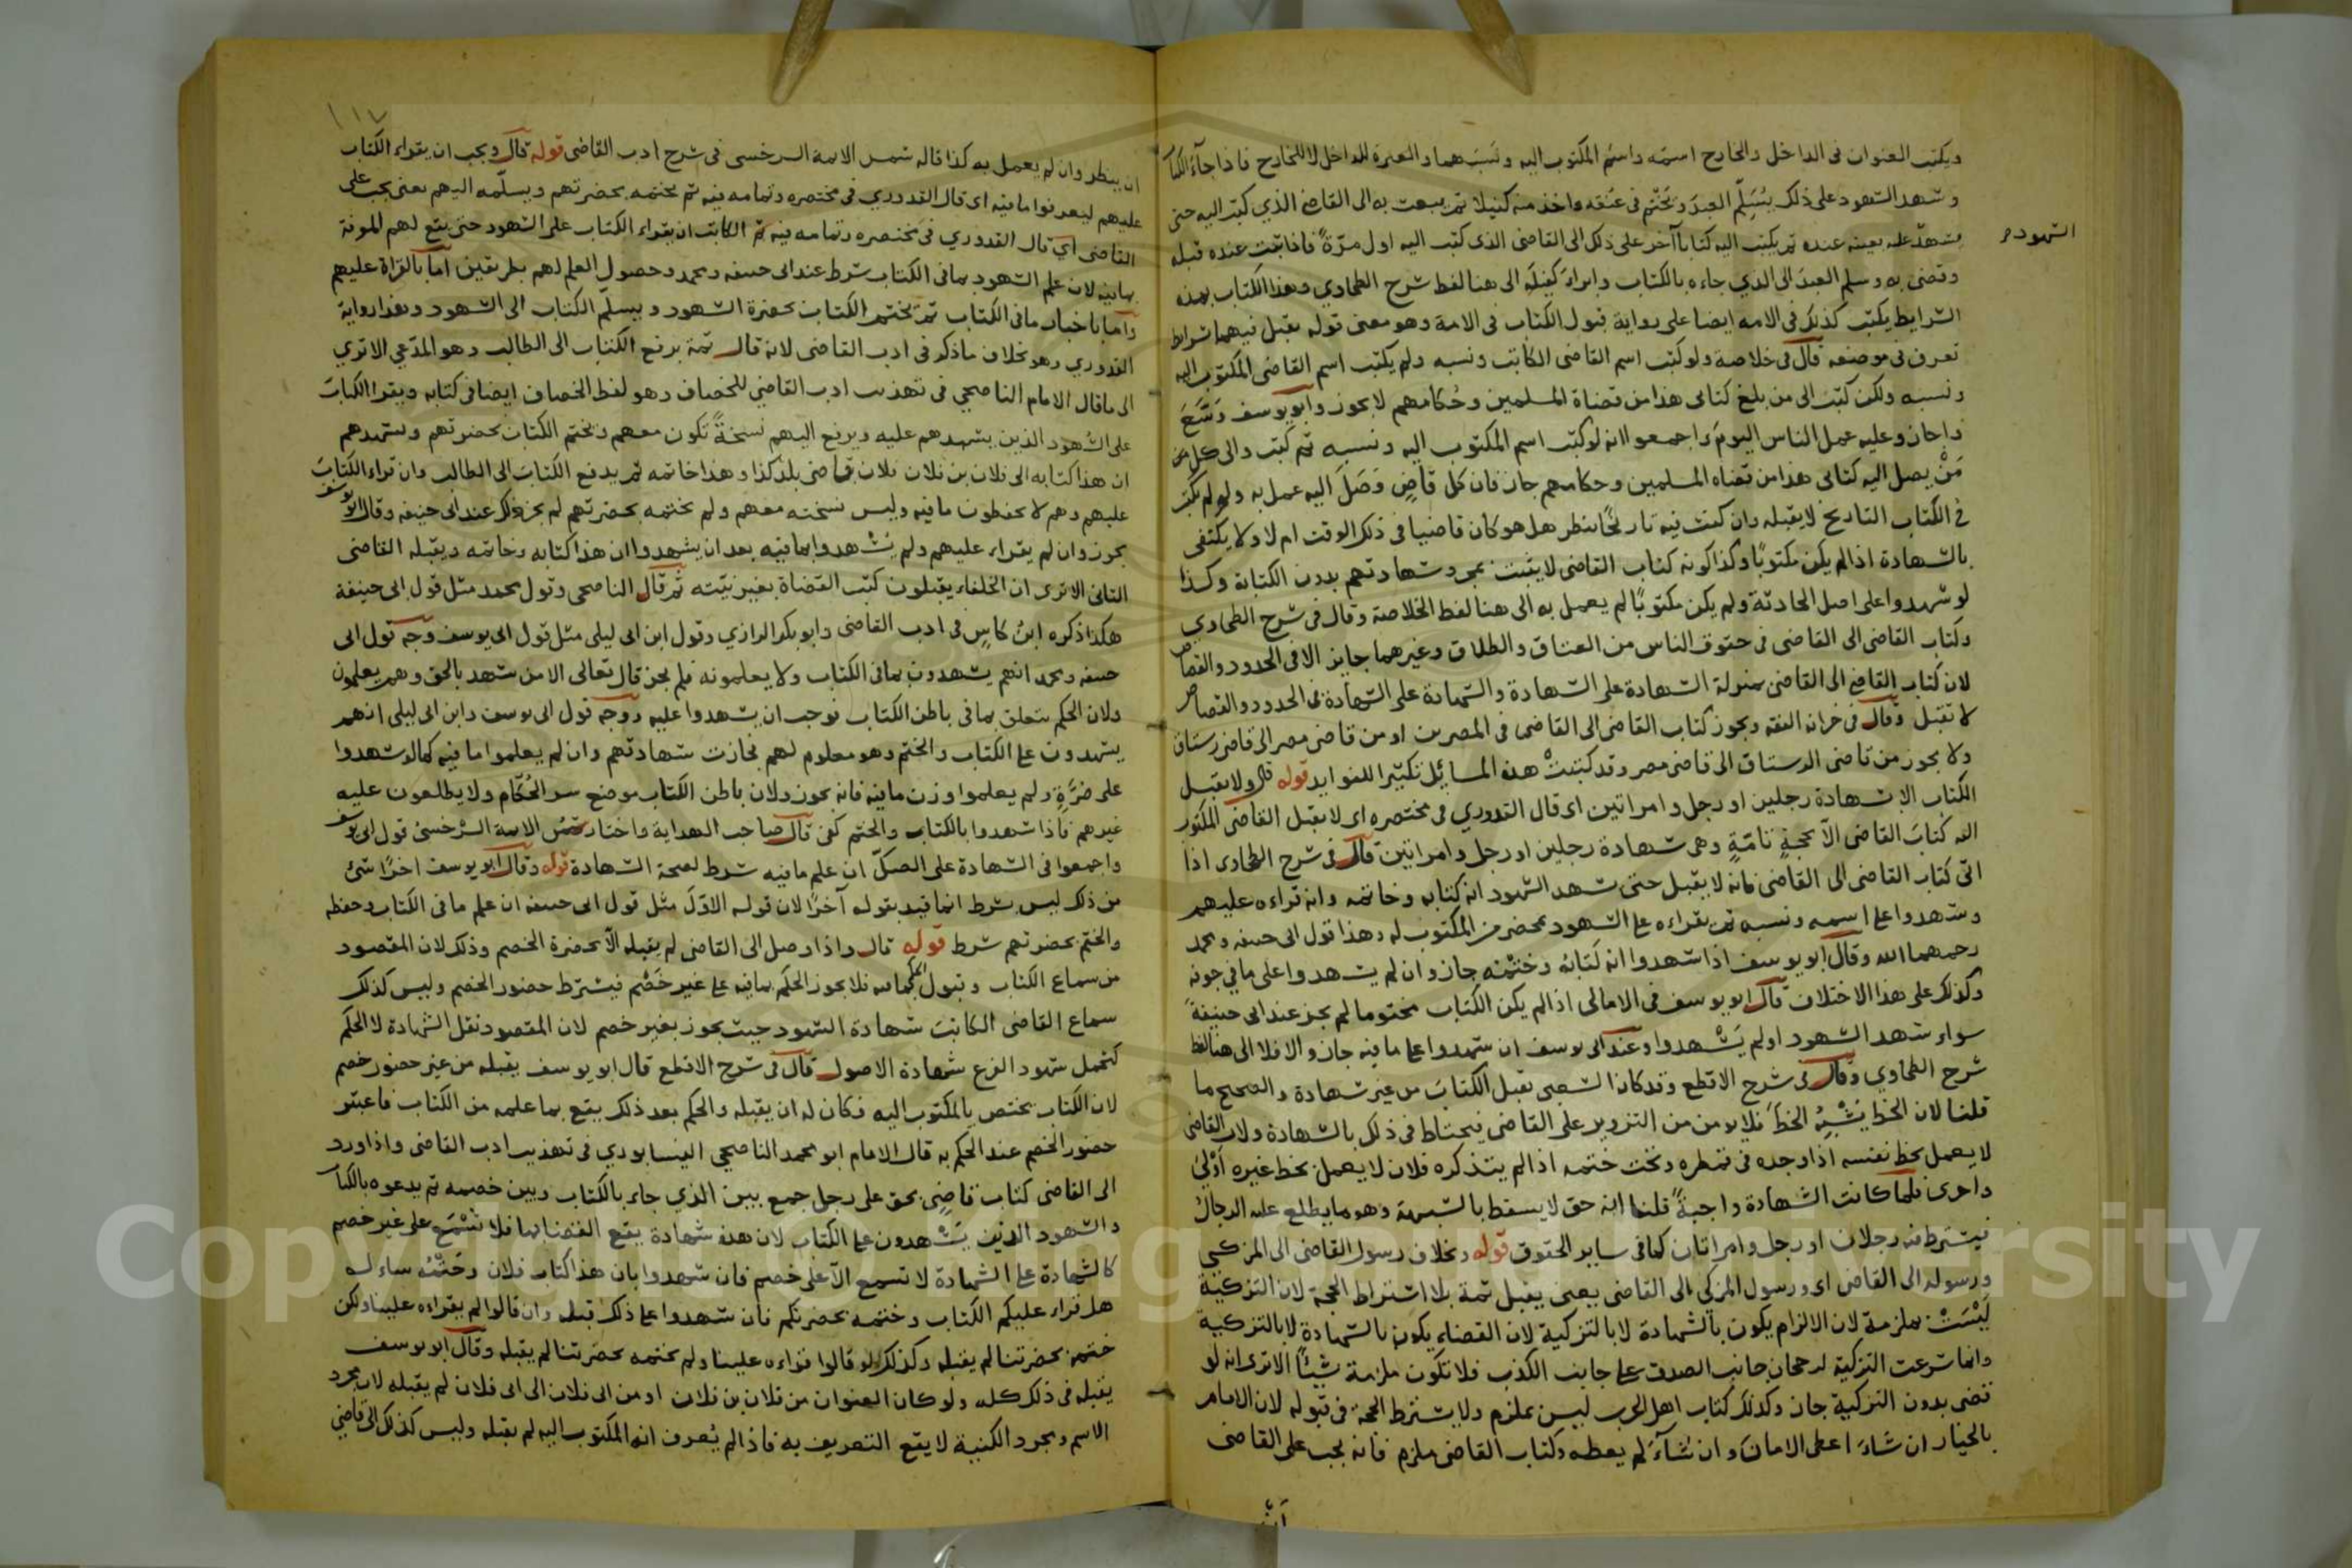 ويكتب العنوان فى الداخل والخارج اسمه واسم المكتوب اليه ونسبهما والعبرة للداخل لا للخارج فاذا جاء الكتاب
وشهد الشهود على ذلك يُسَلِّم العبدَ ويختم فى عنقه واخذ منه كفيلا ثم يبعث به الى القاضى الذي كتب اليه حتى
يشهد عليه بعينه عنده ثم يكتب اليه كتابا آخر على ذلك الى القاضى الذى كتب اليه اول مرّةً فاذا ثبت عنده قبله
الشهود م
وقضى به وسلم العبدَ الى الذي جاءه بالكتاب وابراء كفيله الى هنا لفظ شرح الطحاوي وهذا الكتاب بهذه
الشرايط يكتب كذلك فى الامة ايضا على رواية قبول الكتاب فى الامة وهو معنى قوله يقبل فيهما بشرايط
تعرف فى موضعه قال فى خلاصة ولو كتب اسم القاضى الكاتب ونسبه ولم يكتب اسم القاضى المكتوب اليه
ونسبه ولكن كتب الى من بلغ كتابى هذا من قضاة المسلمين وحُكامهم لا يجوز وابو يوسف وَسَّعَ
واجاز وعليه عمل الناس اليوم واجمعوا انه لو كتب اسم المكتوب اليه ونسبه ثم كتب والى كل من
مَنْ يصل اليه كتابى هذا من قضاه المسلمين وحكامهم جاز فان كل قاضٍ وَصَلَ اليه عمل به ولو لم يكتب
فى الكتاب التاريخ لا يقبله وان كتب فيه تاريخًا ينظر هل هو كان قاضيا فى ذلك الوقت ام لا ولا يكتفى
بالشهادة اذا لم يكن مكتوبًا وكذا كونه كتاب القاضى لا يثبت بمجرد شهادتهم بدون الكتابة وكذا
لو شهدوا على اصل الحادثة ولم يكن مكتوبًا لم يعمل به الى هنا لفظ الخلاصة وقال فى شرح الطحاوي
وكتاب القاضى الى القاضى فى حقوق الناس من العتاق والطلاق وغيرهما جايز الا فى الحدود والقصاص
لان كتاب القاضى الى القاضى بمنزلة الشهادة على الشهادة والشهادة على الشهادة فى الحدود والقصاص
لا تقبل وقال فى خزانه الفقه ويجوز كتاب القاضى الى القاضى فى المصرين او من قاضى مصر الى قاضى رستاق
ولا يجوز من قاضى الرستاق الى قاضى مصر وقد كتبتْ هذه المسايل تكثيرا للفوايد قوله قال ولا يقبل
الكتاب الا بشهادة رجلين او رجل وامراتين اى قال القدوري فى مختصره اى لا يقبل القاضى المكتوب
اليه كتابَ القاضى الّا بحجةٍ تامّةٍ وهى شهادة رجلين او رجل وامراتين قال فى شرح الطحاوى اذا
اتى كتاب القاضى الى القاضى فانه لا يقبل حتى تشهد الشهود انه كتابه وخاتمه وانه قراءه عليهم
وشهدوا على اسمه ونسبه ثم يقراءه على الشهود بمحضر من المكتوب له وهذا قول ابى حنيفه ومحمد
رحمهما الله وقال ابو يوسف اذا شهدوا انه كتابُه وختْمُه جاز وان لم يشهدوا على ما فى جوفه
وكذلك على هذا الاختلاف قال ابو يوسف فى الامالى اذا لم يكن الكتاب مختوما لم يجز عند ابى حنيفةَ
سواء شهد الشهود او لم يَشْهدوا وعند ابى يوسف ان شهدوا على ما فيه جاز والا فلا الى هنا لفظ
شرح الطحاوي وقال فى شرح الاقطع وقد كان الشعبى يقبل الكتابَ من غير شهادة والصحيح ما
قلنا لان الخط يُشْبِهُ الخطَ فلا يومن من التزوير على القاضى فيحتاط فى ذلك بالشهادة ولان القاضى
لا يعمل بخط نفسه اذا وجده فى قمطره وتحت ختمه اذا لم يتذكره فلان لا يعمل بخط غيره اَوْلىٰ
واحرى فلما كانت الشهادة واجبةً قلنا انه حق لا يسقط بالشبهة وهو مما يطلع عليه الرجال
فيشترط فيه رجلان او رجل وامراتان كما فى ساير الحقوق قوله وبخلاف رسول القاضى الى المزكى
ورسوله الى القاضى اى ورسول المزكى الى القاضى يعنى يقبل ثمة بلا اشتراط الحجة لان التزكية
لَيْسَتْ بملزمة لان الالزام يكون بالشهادة لا بالتزكية لان القضاء يكون بالشهادة لا بالتزكية
وانما شرعت التزكية لرجحان جانب الصدق على جانب الكذب فلا تكون ملزمة شيئًا الا ترى انه لو
قضى بدون التزكية جاز وكذلك كتاب اهل الحرب ليس بملزم ولا يشترط الحجة فى قبوله لان الامام
بالخيار ان شاءَ اعطى الامانَ وان شآءَ لم يعطه وكتاب القاضى ملزم فانه يجب على القاضى
١١٧
ان ينظر وان لم يعمل به كذا قاله شمس الايمة السرخسى فى شرح ادب القاضى قوله قال ويجب ان يقراء الكتاب
عليهم ليعرفوا ما فيه اى قال القدوري فى مختصره وتمامه فيه ثم يختمه بحضرتهم ويسلّمه اليهم يعنى يجب على
القاضى اي قال القدوري فى مختصره وتمامه فيه ثم الكاتب ان يقراء الكتاب على الشهود حتى يقع لهم المعرفة
بما فيه لان علم الشهود بما فى الكتاب شرط عند ابى حنيفه ومحمد وحصول العلم لهم بطريقين اما بالقراة عليهم
واما باخبار ما فى الكتاب ثم يختم الكتاب بحضرة الشهود ويسلّم الكتاب الى الشهود وهذا رواية
القدوري وهو بخلاف ما ذكر فى ادب القاضى لانه قال ثمة يرفع الكتاب الى الطالب وهو المدّعي الا تري
الى ما قال الامام الناصحي فى تهذيب ادب القاضي للخصاف وهو لفظ الخصاف ايضا فى كتابه ويقرا الكتابَ
على الشُهود الذين يشهدهم عليه ويرفع اليهم نسخةً تكون معهم ويختم الكتاب بحضرتهم ويشهدهم
ان هذا كتابه الى فلان بن فلان فلان قاضى بلد كذا وهذا خاتمه ثم يدفع الكتابَ الى الطالب وان قراء الكتابَ
عليهم وهم لا يحفظون ما فيه وليس نسخته معهم ولم يختمه بحضرتهم لم يجز ذلك عند ابى حنيفه وقال ابو يوسف
يجوز وان لم يقراء عليهم ولم يَشْهدوا بما فيه بعد ان يشهدوا ان هذا كتابه وخاتمه ويقبله القاضى
الثانى الا ترى ان الخلفاء يقبلون كتب القضاة بغير بيّنه ثم قال الناصحى وقول محمد مثل قول ابى حنيفة
هكذا ذكره ابنُ كاسٍ فى ادب القاضى وابو بكر الرازي وقول ابن ابى ليلى مثل قول ابى يوسف وَجه قول ابى
حنيفه ومحمد انهم يشهدون بما فى الكتاب ولا يعلمونه فلم يجز قال تعالى الا من شهد بالحق وهم يعلمون
ولان الحكم يتعلق بما فى باطن الكتاب فوجب ان يشهدوا عليه ووجه قول ابى يوسف وابن ابى ليلى انهم
يشهدون على الكتاب والختم وهو معلوم لهم فجازت شهادتهم وان لم يعلموا ما فيه كما لو شهدوا
على صُرَّةٍ ولم يعلموا وزن ما فيه فانه يجوز ولان باطن الكتاب موضع سر الحُكّام ولا يطلعون عليه
غيرهم فاذا شهدوا بالكتاب والختم كفى قال صاحب الهداية واختار شمسُ الايمة السَّرْخسىُ قول ابى يوسف
واجمعوا فى الشهادة على الصكّ ان علم ما فيه شرط لصحة الشهادة قوله وقال ابو يوسف اخرًا شئ
من ذلك ليس بشرط انما قيد بقوله آخرًا لان قوله الاوّلَ مثل قول ابى حنيفه ان علم ما فى الكتاب وحفظه
والختم بحضرتهم شرط قوله قال واذا وصل الى القاضى لم يقبله الّا بحضرة الخصم وذلك لان المقصود
من سماع الكتاب وقبول الحكم بما فيه فلا يجوز الحكم بما فيه على غير خَصْم فيشترط حضور الخصم وليس كذلك
سماع القاضى الكاتبَ شهادة الشهود حيث يجوز بغير خصم لان المقصود نقل الشهادة لا الحكم
كتحمل شهود الفرع شهادة الاصول قال فى شرح الاقطع قال ابو يوسف يقبله من غير حضور خصم
لان الكتاب يختص بالمكتوب اليه فكان له ان يقبله والحكم بعد ذلك يقع بما علمه من الكتاب فاعتبر
حضور الخصم عند الحكم به قال الامام ابو محمد الناصحي النيسابوري فى تهذيب ادب القاضى واذا ورد
الى القاضى كتاب قاضٍ بحق على رجل جمع بين الذي جاء بالكتاب وبين خصمه ثم يدعوه بالكتاب
والشهود الذين يَشْهدون على الكتاب لان هذه شهادة يقع القضا بها فلا تُسْمَع على غير خصم
كالشهادة على الشهادة لا تسمع الّا على خصم فان شهدوا بان هذا كتاب فلان وختْمُه ساءلهم
هل قراء عليكم الكتاب وختمه بحضرتكم فان شهدوا على ذلك قبله وان قالوا لم يقراءه علينا ولكن
ختمه بحضرتنا لم يقبله وكذلك لو قالوا قراءه علينا ولم يختمه بحضرتنا لم يقبله وقال ابو يوسف
يقبله فى ذلك كله ولو كان العنوان من فلان بن فلان او من ابى فلان الى ابى فلان لم يقبله لان مجرد
الاسم ومجرد الكنية لا يقع التعريف به فاذا لم يُعرف انه المكتوب اليه لم يقبله وليس كذلك الى قاضي
Copyright © King Saud University